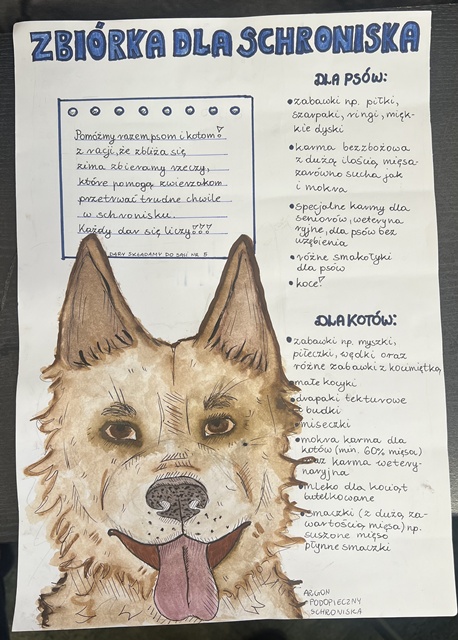 ZBIÓRKA DLA SCHRONISKA
Pomóżmy razem psom i kotom!
z racji, że zbliża się
zima zbieramy rzeczy,
które pomogą zwierzakom
przetrwać trudne chwile
w schronisku.
Każdy dar się liczy!!!
DARY SKŁADAMY DO SALI NR 5
DLA PSÓW:
•zabawki np. piłki,
szarpaki, ringi, mięk-
kie dyski
•karma bezzbożowa
z dużą ilością mięsa-
zarówno sucha jak
i mokra
•specjalne karmy dla
seniorów, weteryna
ryjne, dla psów bez
uzębienia
•różne smakołyki
dla psów
•koce!
DLA KOTÓW:
•zabawki np. myszki,
piłeczki, wędki oraz
różne zabawki z kocimiętką
małe kocyki
•drapaki tekturowe
budki
miseczki
•mokra karma dla
kotów (min. 60% mięsa)
oraz karma wetery-
naryjna
•mleko dla kociąt
butelkowane
•smaczki (z dużą za-
wartością mięsa) np.
suszone mięso
płynne smaczki
ARGON
-PODOPIECZNY
SCHRONISKA